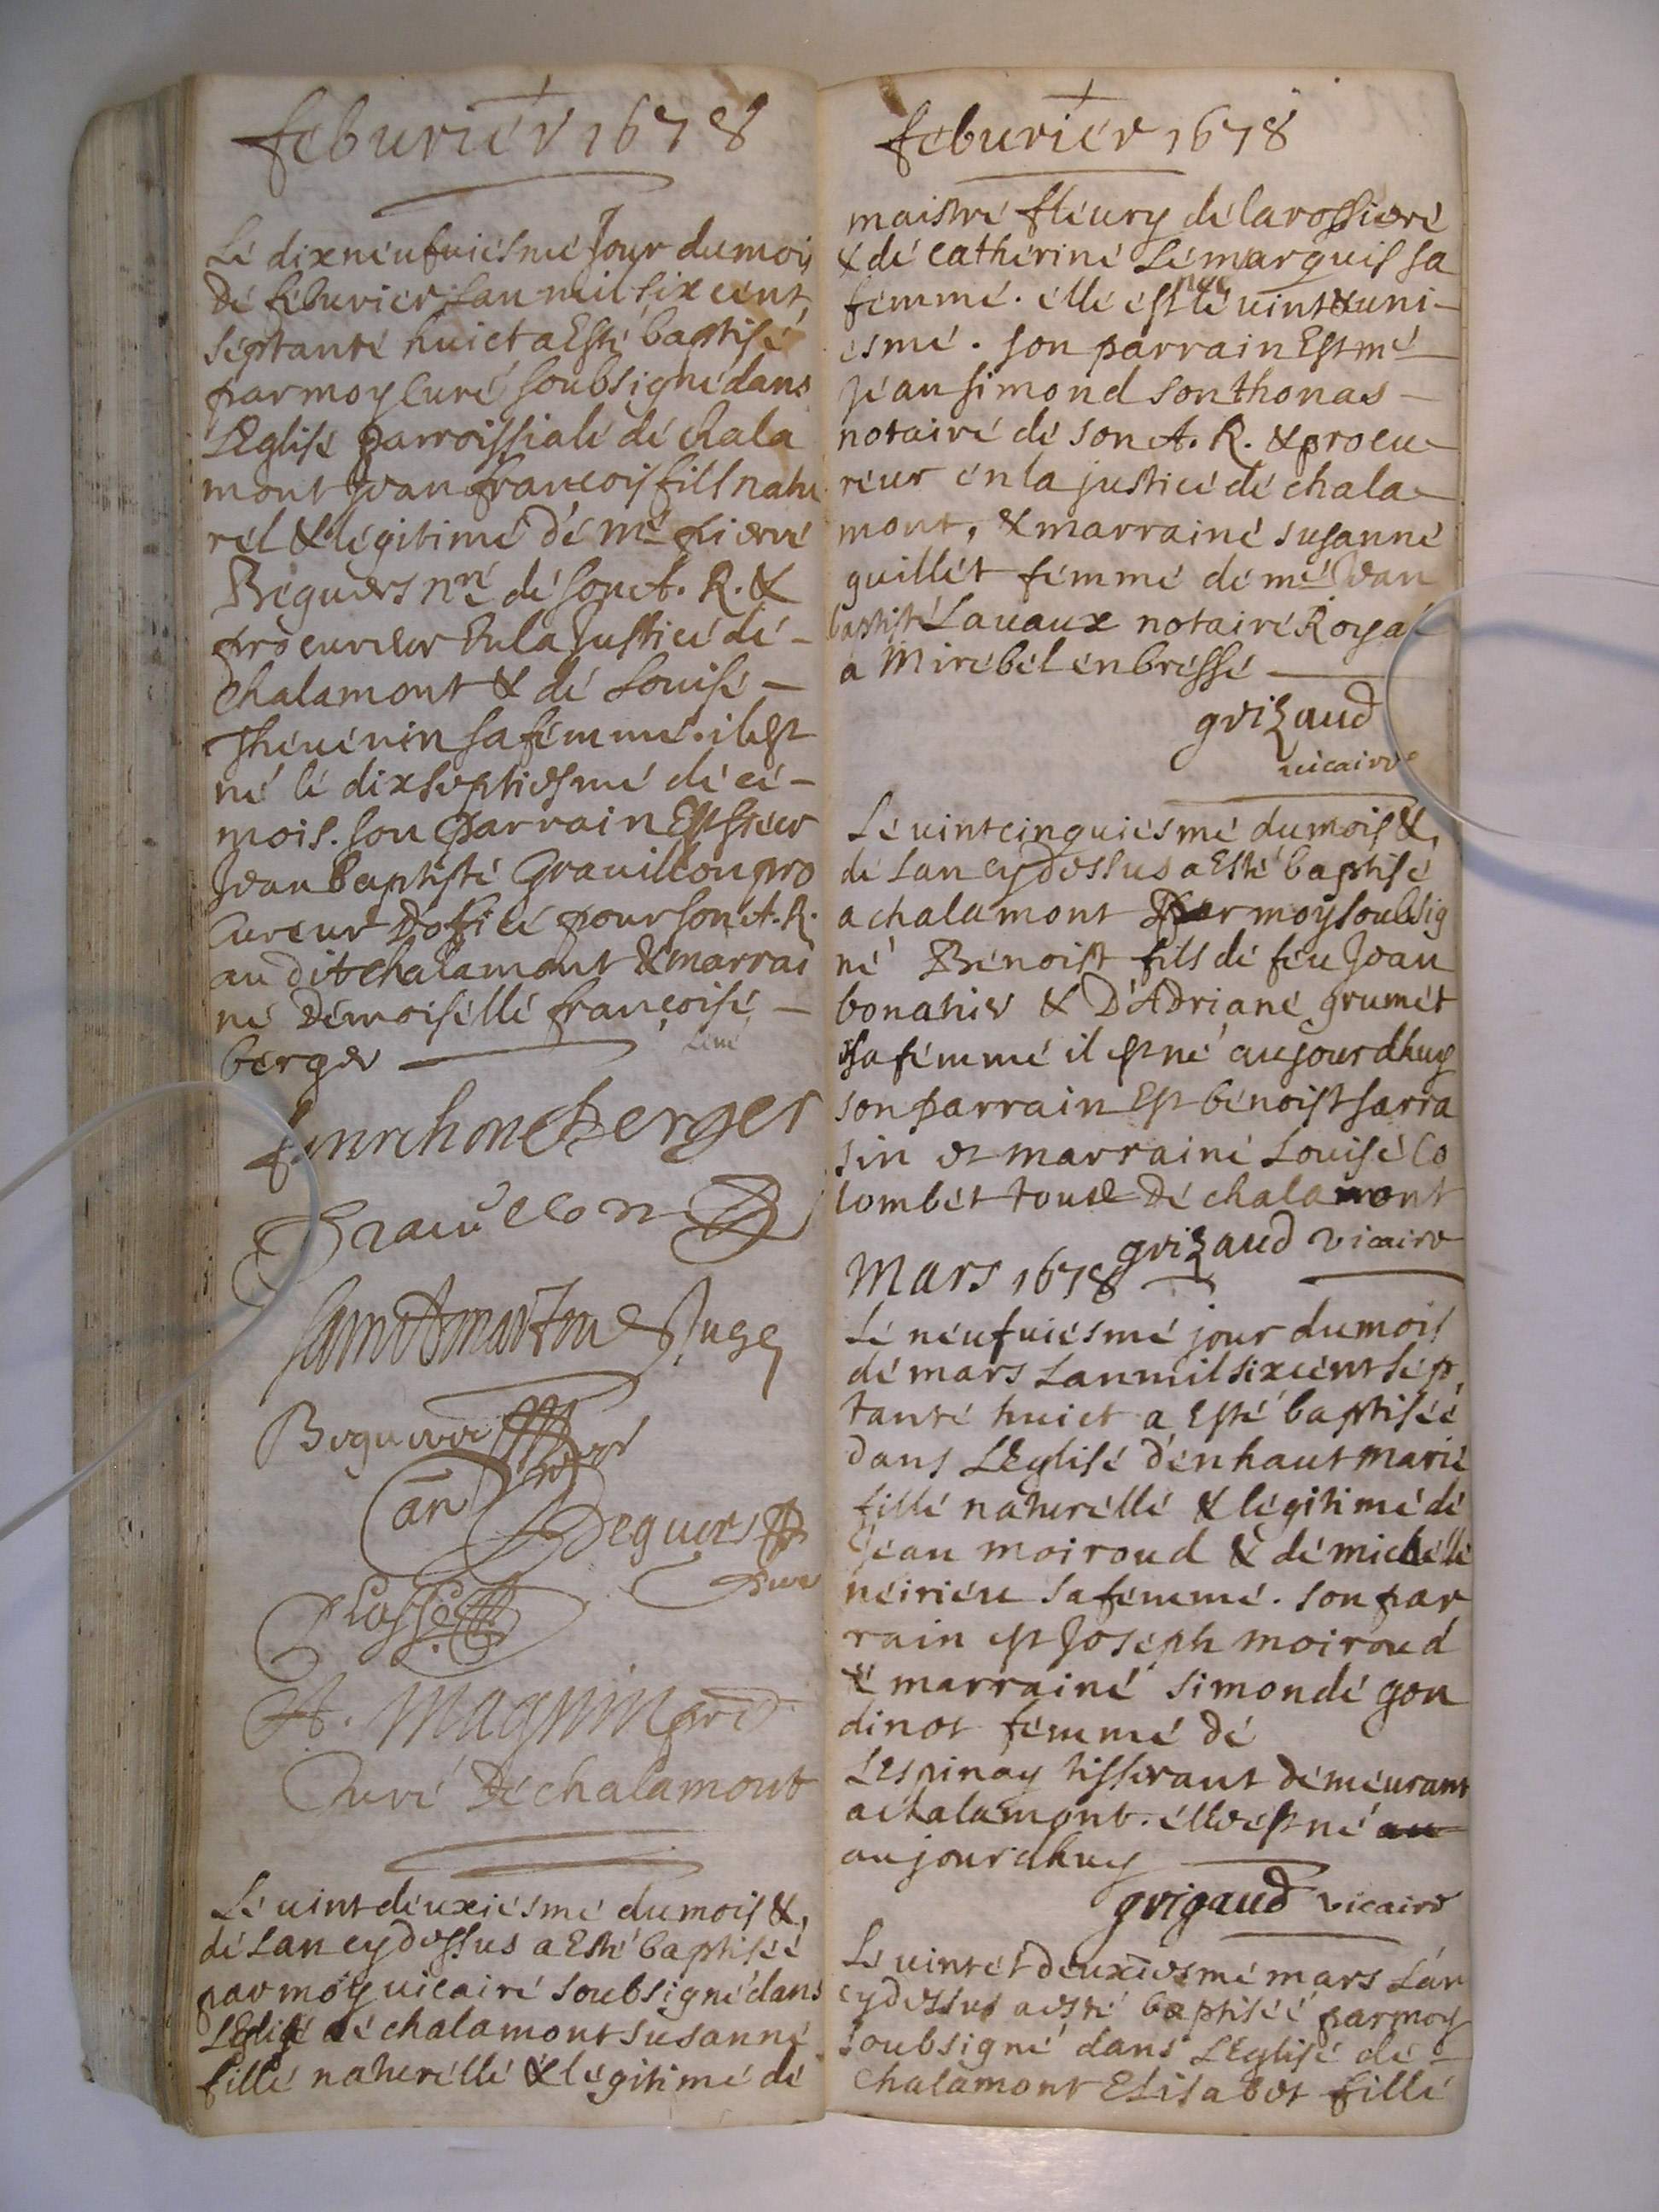 feburier 1678
Le dixneufuiesme Jour du mois
De feburier Lan mil six cent
septante huict a Esté baptisé
par moy Curé soubsigné dans
LEglise parroissiale de chala
mont Jean francois fils natu
rel & legitime de me pierre
Beguers nre de son A. R. &
procureur En la Justice de –
chalamont & de Louise –
Theuenin sa femme. il est
né le dixseptiesme de ce –
mois. son parrain Est sieur
Jean baptiste Grauillon pro
Cureur Dofice pour son A. R.
au dit chalamont & marrai
ne Demoiselle françoise –
berger
berger
Grauillon
Juge
Beguers
A. Magnin
Curé De chalamont
Le uint deuxiesme du mois &
de Lan cy dessus a Esté baptiséé
par moy uicaire soubsigné dans
LEglise de chalamont susanne
fille naturelle & legitime de
feburier 1678
maistre fleury de larossiere
& de catherine Lemarquis sa
femme. elle est née le uint & uni–
esme. son parrain Est me
Jean simond sonthonas –
notaire de son A. R. & procu–
reur en la justice de chala–
mont, & marraine susanne
guillet femme de me Jean
baptiste Lauaux notaire Royal
a Mirebel en bresse
grizaud
uicaire
Le uintcinquiesme du mois &
de Lan cy dessus a Esté baptisé
a chalamont Par moy soubsig
né Benoist fils de feu Jean
bonahier & D'Adriane grumet
sa femme il est né aujourdhuy
son parrain Est benoist sarra
sin et marraine Louise Co
lombet tous De chalamont
grizaud vicaire
Mars 1678
Le neufuiesme jour du mois
de mars Lan mil six cent sep
tante huict a Esté baptiséé
dans LEglise d'enhaut marie
fille naturelle & legitime de
Jean moiroud & de michelle
neirieu sa femme. son par
rain est Joseph moiroud
& marraine simonde gon
dinot femme de
Lespinay tisserant demeurant
a chalamont. elle est né au
aujourdhuy
grigaud vicaire
Le uint et deuxiesme mars Lan
cy dessus a esté baptiséé par moy
soubsigné dans LEglise de –
chalamont Elisabet fille